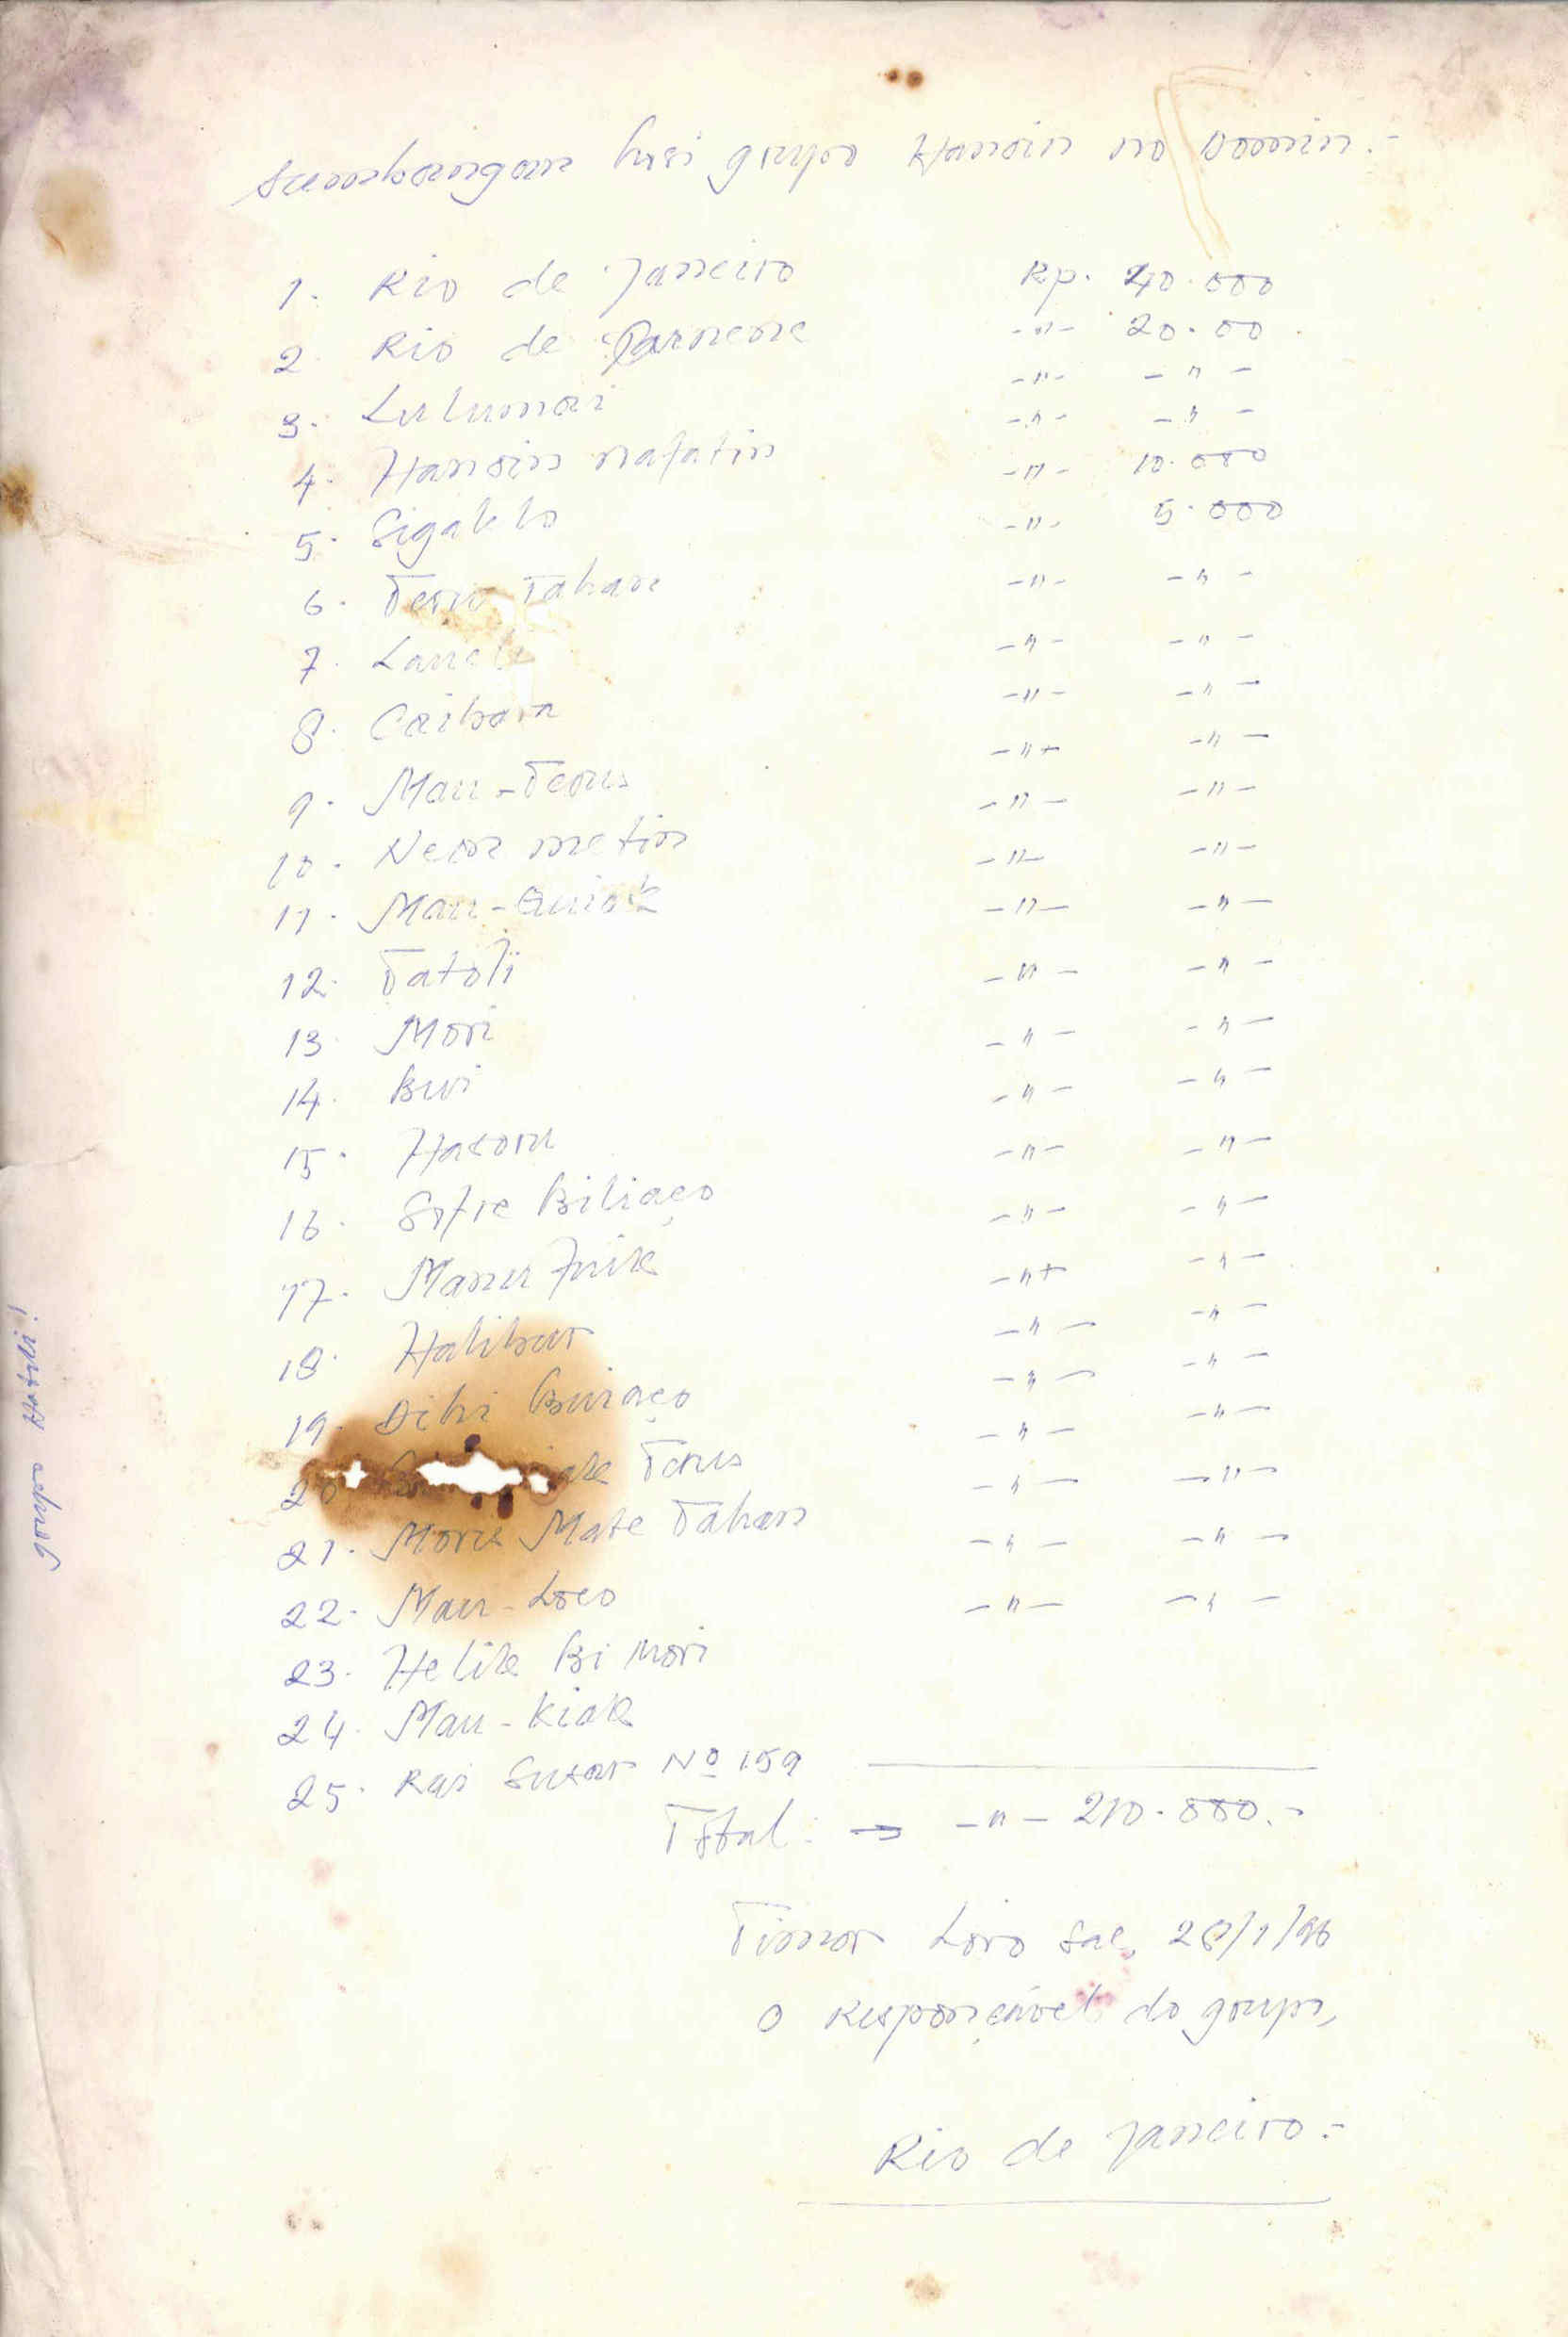 Sumbangan husi grupo Hanoin no Domin.-
1. Rio de Janeiro Rp. 40.000
2. Rio de -"- 20.00
3. Lulumori -"- -"-
4. Hanoin nafatin -"- -"-
5. Sigakto -"- 10.000
6. Teru Tahan -"- 5.000
7. -"- -"-
8. -"- -"-
9. Mau-Terus -"- -"-
10. Neon metin -"- -"-
11. Mau-Quiak -"- -"-
12. Tatoli -"- -"-
13. Mori -"- -"-
14. Bui -"- -"-
15. Hasoru -"- -"-
16. Sofre Biliaço -"- -"-
17. Manu Fuik -"- -"-
18. Halibur -"- -"-
19. Dihi Buiaço -"- -"-
20 Terus -"- -"-
21. Moris Mate Tahan -"- -"-
22. Mau-Loco -"- -"-
23. Helik Bi Mori -"- -"-
24. Mau-Kiak -"- -"-
25. Rai Nº 159 -"- -"-
Total: → -"- 210.000.-
Timor Loro Sae, 28/1/96
O Responçável do grupo,
Rio de Janeiro.-
grupo Hatili!